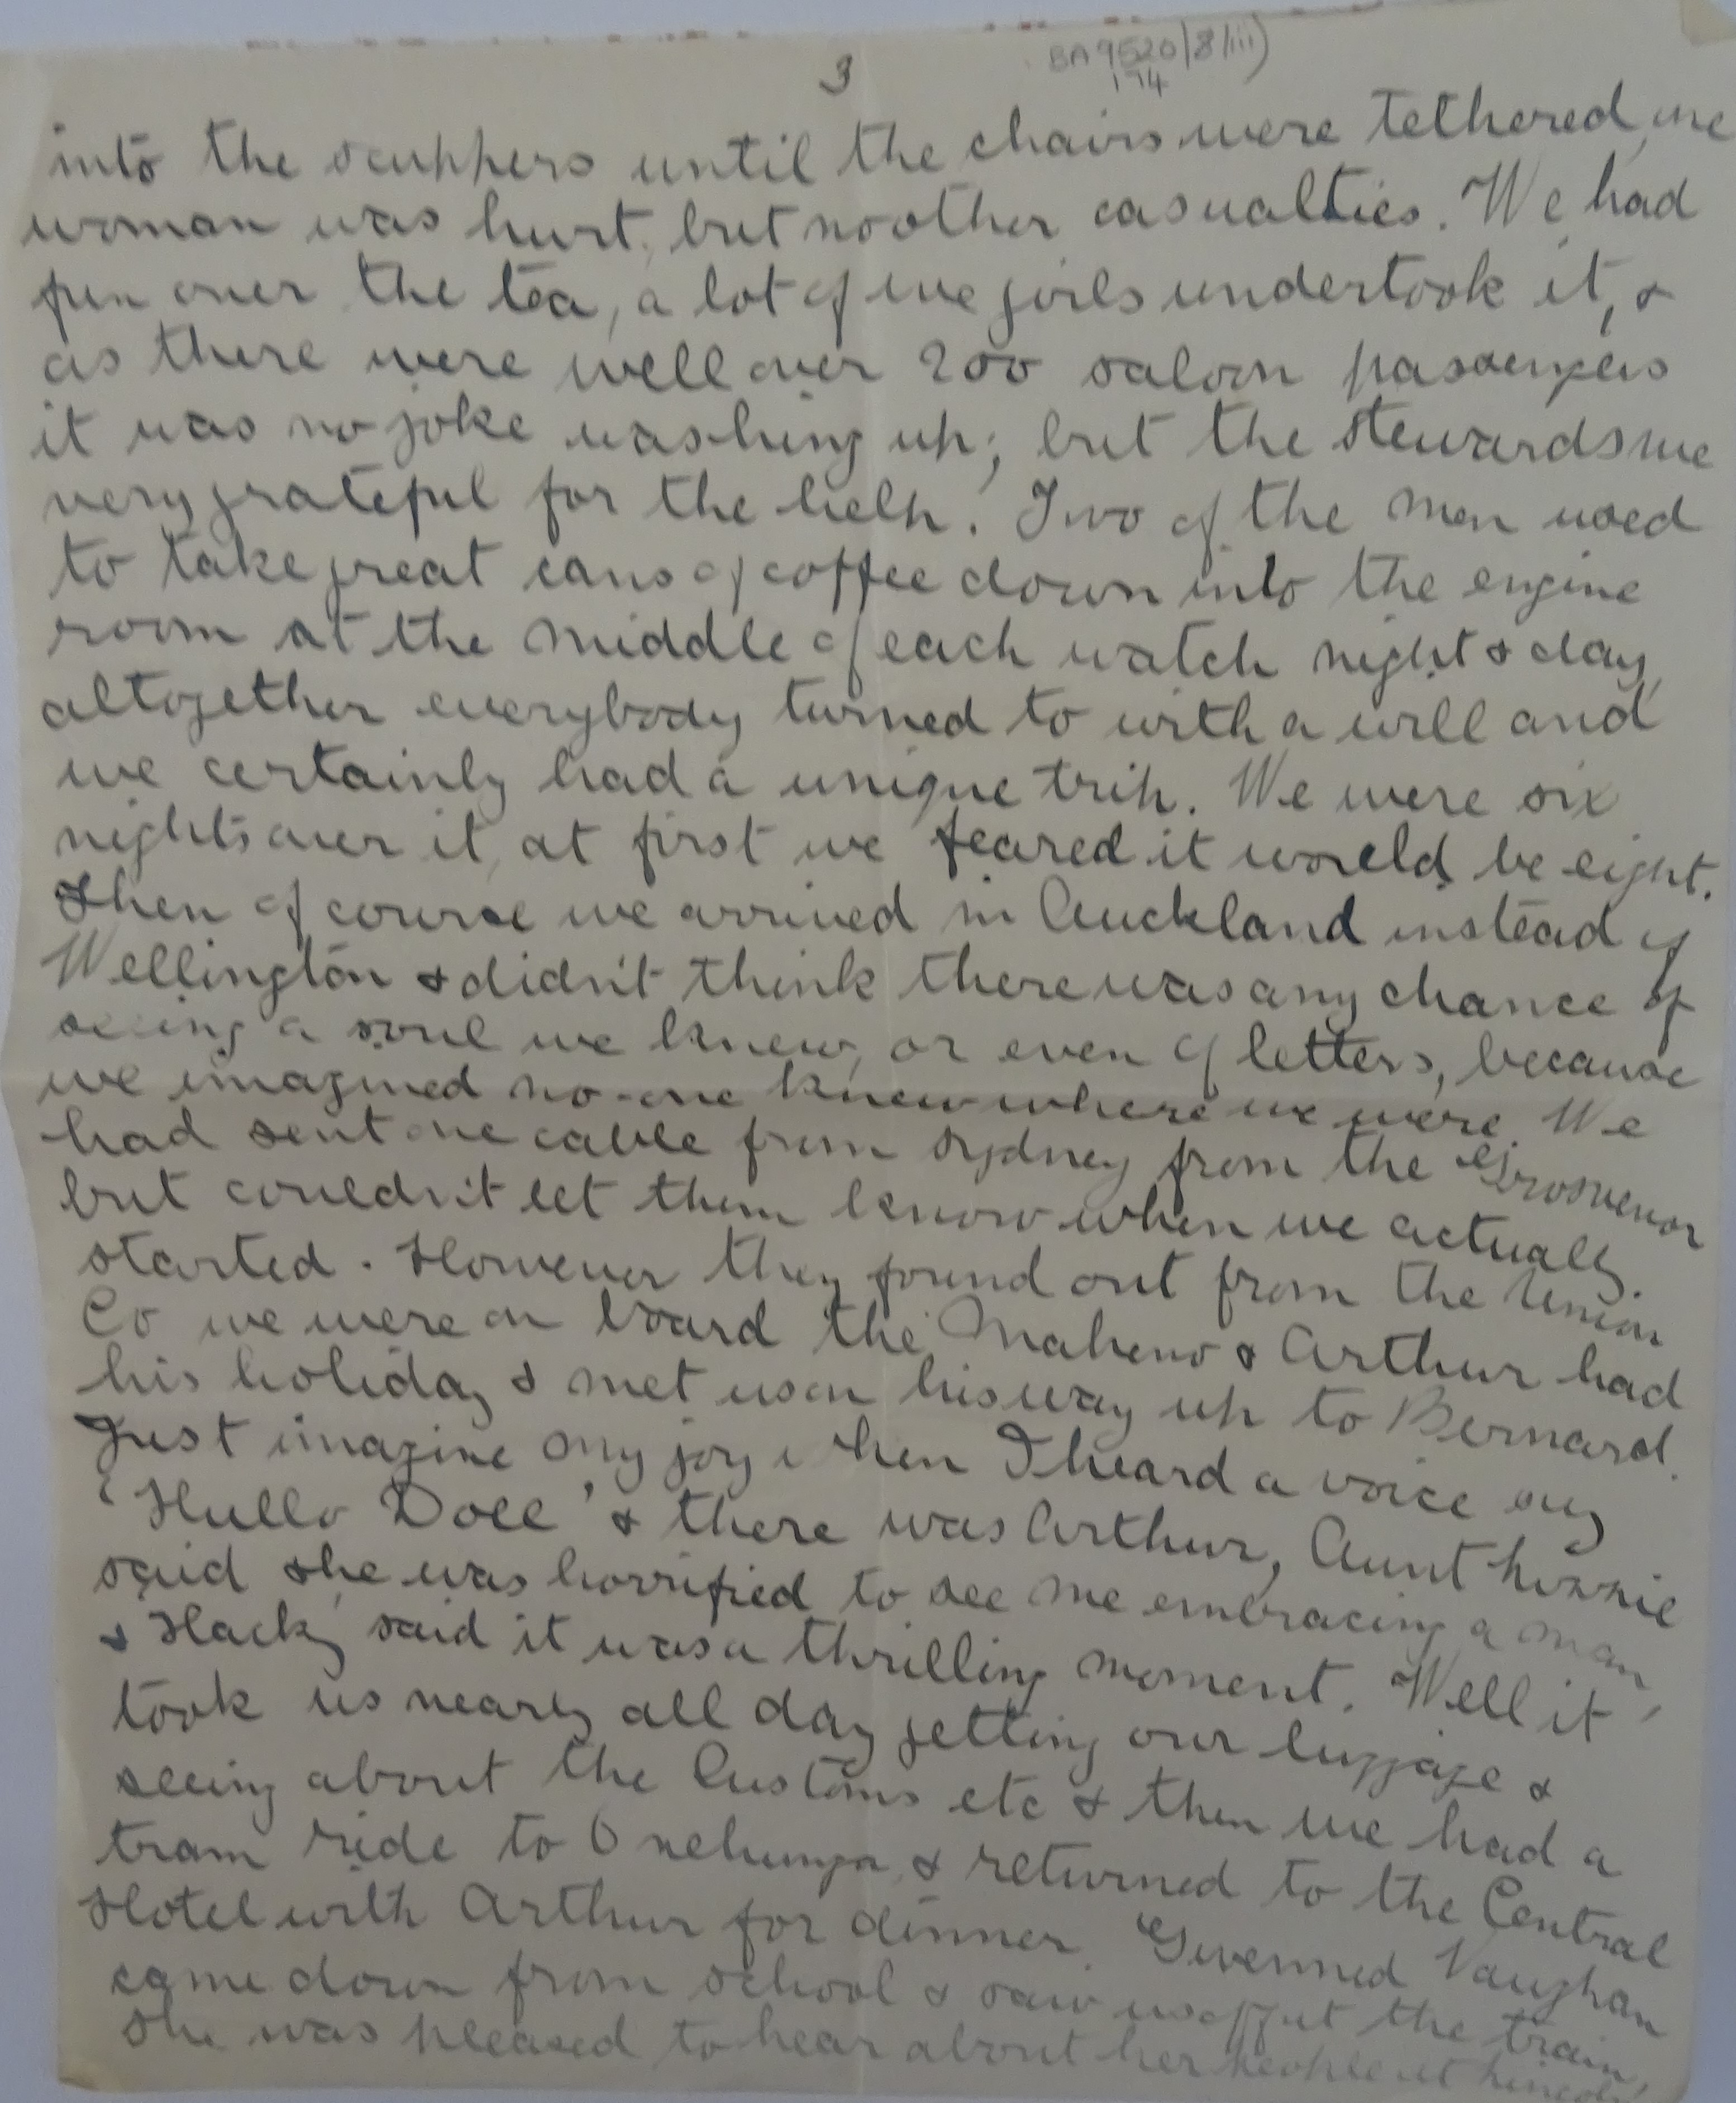 3
BA9520/8/iii)
174
into the scuppers until the chairs were tethered, one
woman was hurt, but no other casualties. We had
fun over the tea, a lot of we girls undertook it, &
as there were well over 200 saloon passengers
it was no joke washing up; but the stewards were
very grateful for the help. Two of the men used
to take great cans of coffee down into the engine
room at the middle of each watch night & day,
altogether everybody turned to with a will and
we certainly had a unique trip. We were six
nights over it, at first we feared it would be eight.
Then of course we arrived in Auckland instead of
Wellington & didn't think there was any chance of
seeing a soul we knew, or even of letters, because
we imagined no-one knew where we were. We
had sent one cable from Sydney from the Grosvenor
but couldn't let them know when we actually
started. However they found out from the Union
Co we were on board the Maheno & Arthur had
his holiday & met us on his way up to Bernard.
Just imagine my joy when I heard a voice say
'Hullo Doll' & there was Arthur, Aunt Linnie
said she was horrified to see me embracing a man,
& Hack, said it was a thrilling moment. Well it
took us nearly all day getting our luggage &
seeing about the Customs etc & then we had a
tram ride to Onehunga, & returned to the Central
Hotel with Arthur for dinner. Gwenned Vaughan
came down from school & saw us off at the train,
She was pleased to hear about her people at Lincoln